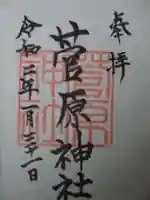 奉拝
菅原神社
令和二年一月三十一日